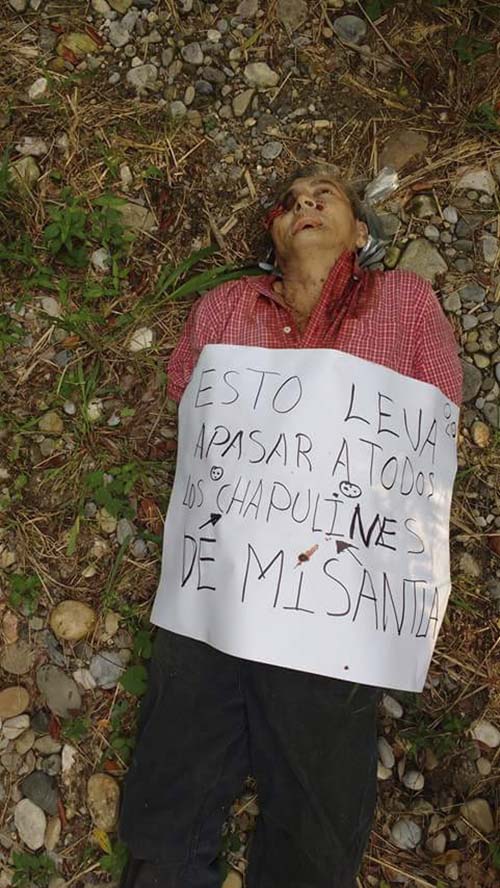 ESTO LEVA
APASAR ATODOS
LOS CHAPULINES
DE MISANTLA